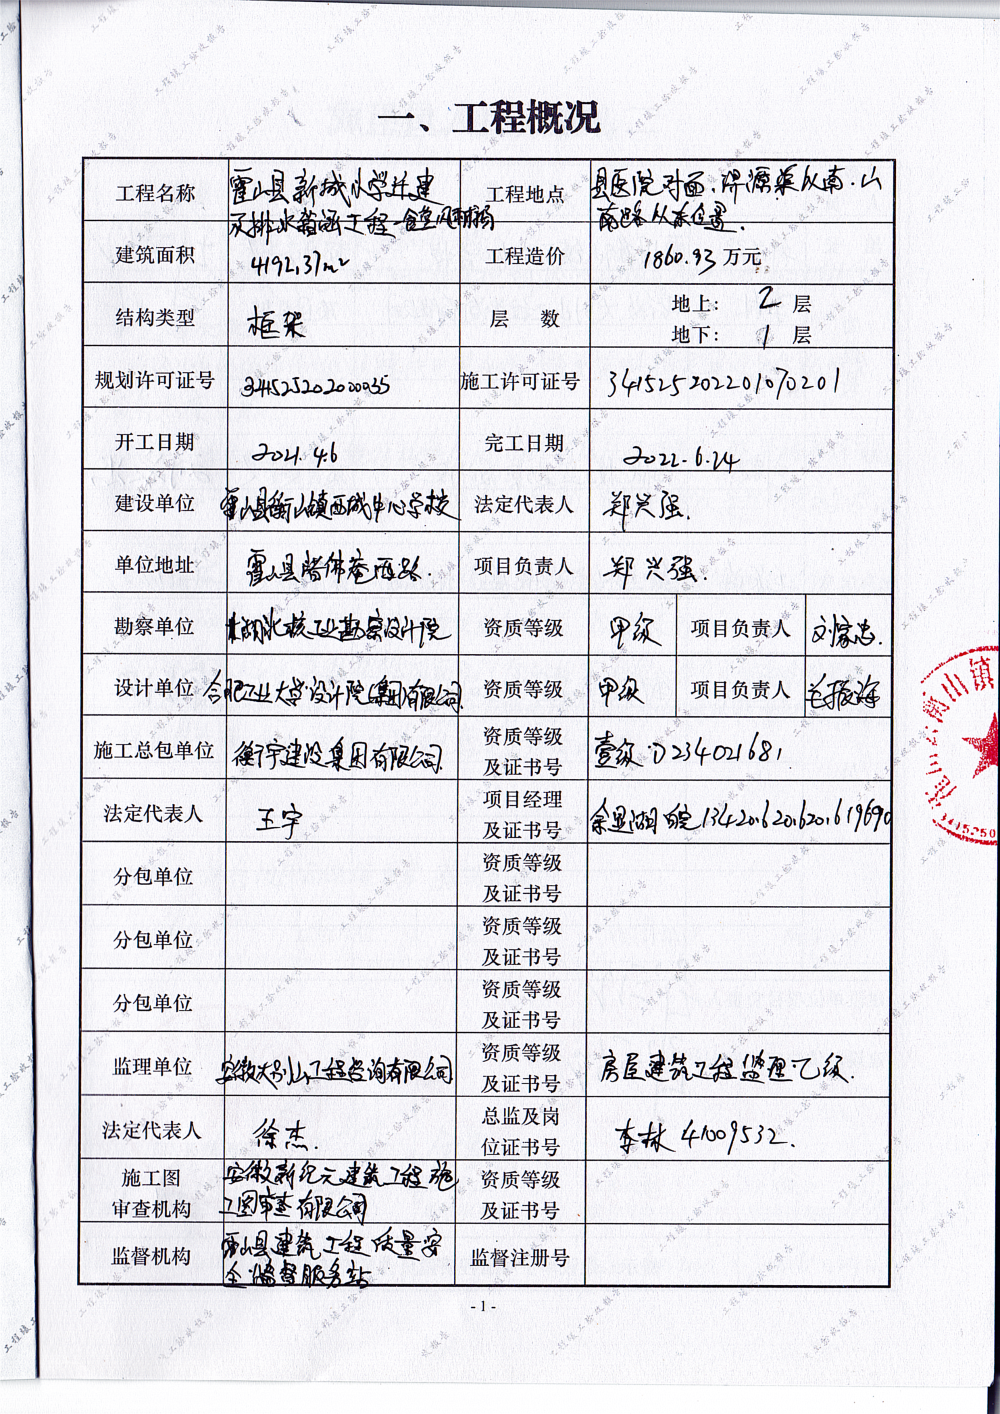 一、工程概况
工程名称 霍山县新城小学迁建及排水箱涵工程-食堂风雨操场 工程地点 县医院对面、淠源渠以南、山南路以东位置.
建筑面积 4192.37m² 工程造价 1860.93 万元
结构类型 框架 层 数 地上: 2 层
地下: 1 层
规划许可证号 341525202000035 施工许可证号 341525202201070201
开工日期 2021.4.6 完工日期 2022.6.24
建设单位 霍山县衡山镇西城中心学校 法定代表人 郑兴强.
单位地址 霍山县诸佛庵西路. 项目负责人 郑兴强.
勘察单位 湖北核工业勘察设计院 资质等级 甲级 项目负责人 刘家忠.
设计单位 合肥工业大学设计院(集团)有限公司 资质等级 甲级 项目负责人 毛振海
施工总包单位 衡宇建设集团有限公司 资质等级及证书号 壹级 D234021681
法定代表人 王宇 项目经理及证书号 余显湖 皖
分包单位 资质等级及证书号
分包单位 资质等级及证书号
分包单位 资质等级及证书号
监理单位 安徽大别山工程咨询有限公司 资质等级及证书号 房屋建筑工程监理乙级.
法定代表人 徐杰. 总监及岗位证书号 李林 41009532.
施工图审查机构 安徽新纪元建筑工程施工图审查有限公司 资质等级及证书号
监督机构 霍山县建筑工程质量安全监督服务站 监督注册号
- 1 -